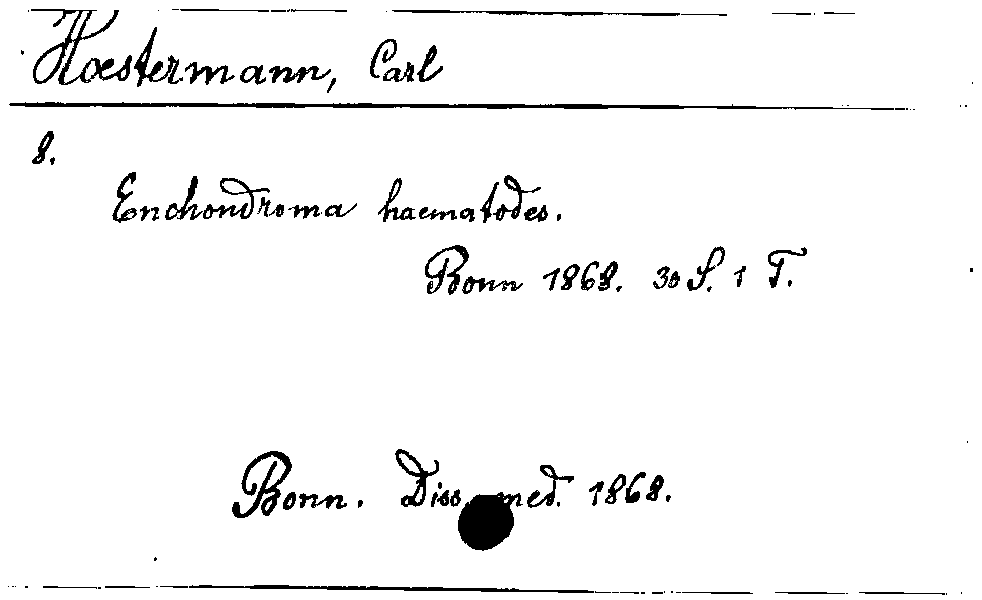 Hoestermann, Carl
8.
Enchondroma haematodes.
Bonn 1868. 30 S. 1 T.
Bonn. Diss. med. 1868.